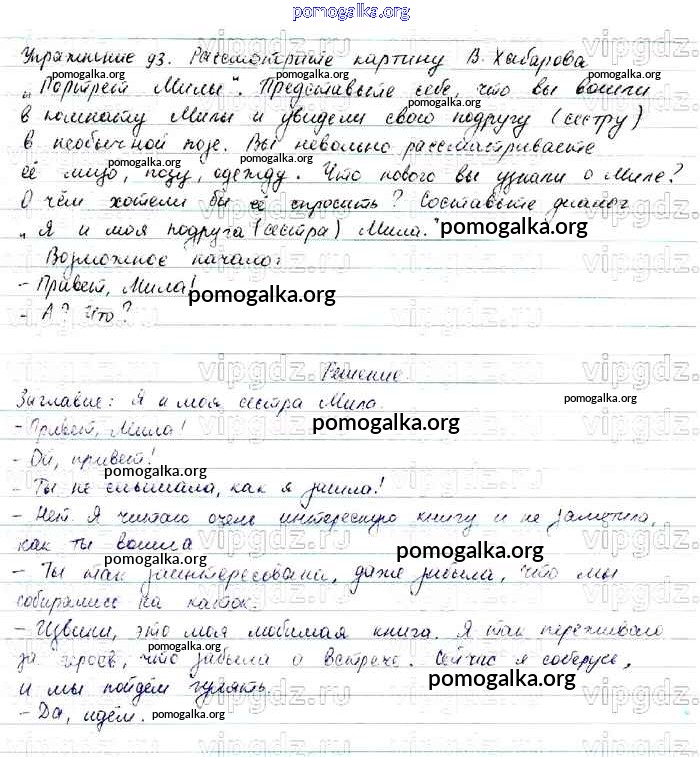 pomogalka.org
Упражнение 93. Рассмотрите картину В. Хабарова
„Портрет Милы“. Представьте себе, что вы вошли
в комнату Милы и увидели свою подругу (сестру)
в необычной позе. Вы невольно рассматриваете
её лицо, позу, одежду. Что нового вы узнали о Миле?
О чём хотели бы её спросить? Составьте диалог
„Я и моя подруга (сестра) Мила.“ pomogalka.org
Возможное начало:
- Привет, Мила! pomogalka.org
- А? Что?
Решение.
Заглавие: Я и моя сестра Мила.
- Привет, Мила! pomogalka.org
- Ой, привет!
- Ты не слышала, как я зашла!
- Нет. Я читаю очень интересную книгу и не заметила,
как ты вошла pomogalka.org
- Ты так заинтересована, даже забыла, что мы
собирались на каток.
- Извини, это моя любимая книга. Я так переживаю
за героев, что забыла о встрече. Сейчас я соберусь,
и мы пойдём гулять. pomogalka.org
- Да, идём. pomogalka.org